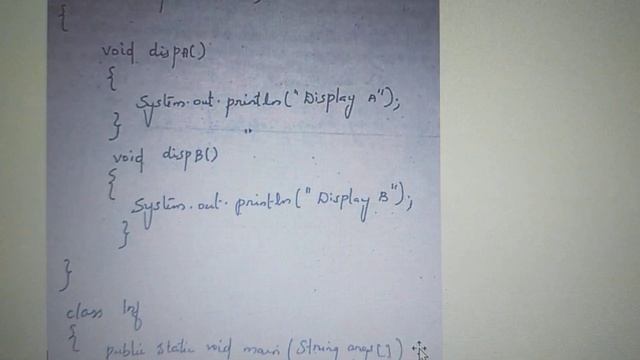 {
void dispA()
{
System.out.println("Display A");
}
void dispB()
{
System.out.println("Display B");
}
}
class Inf
{
public static void main(String args[])